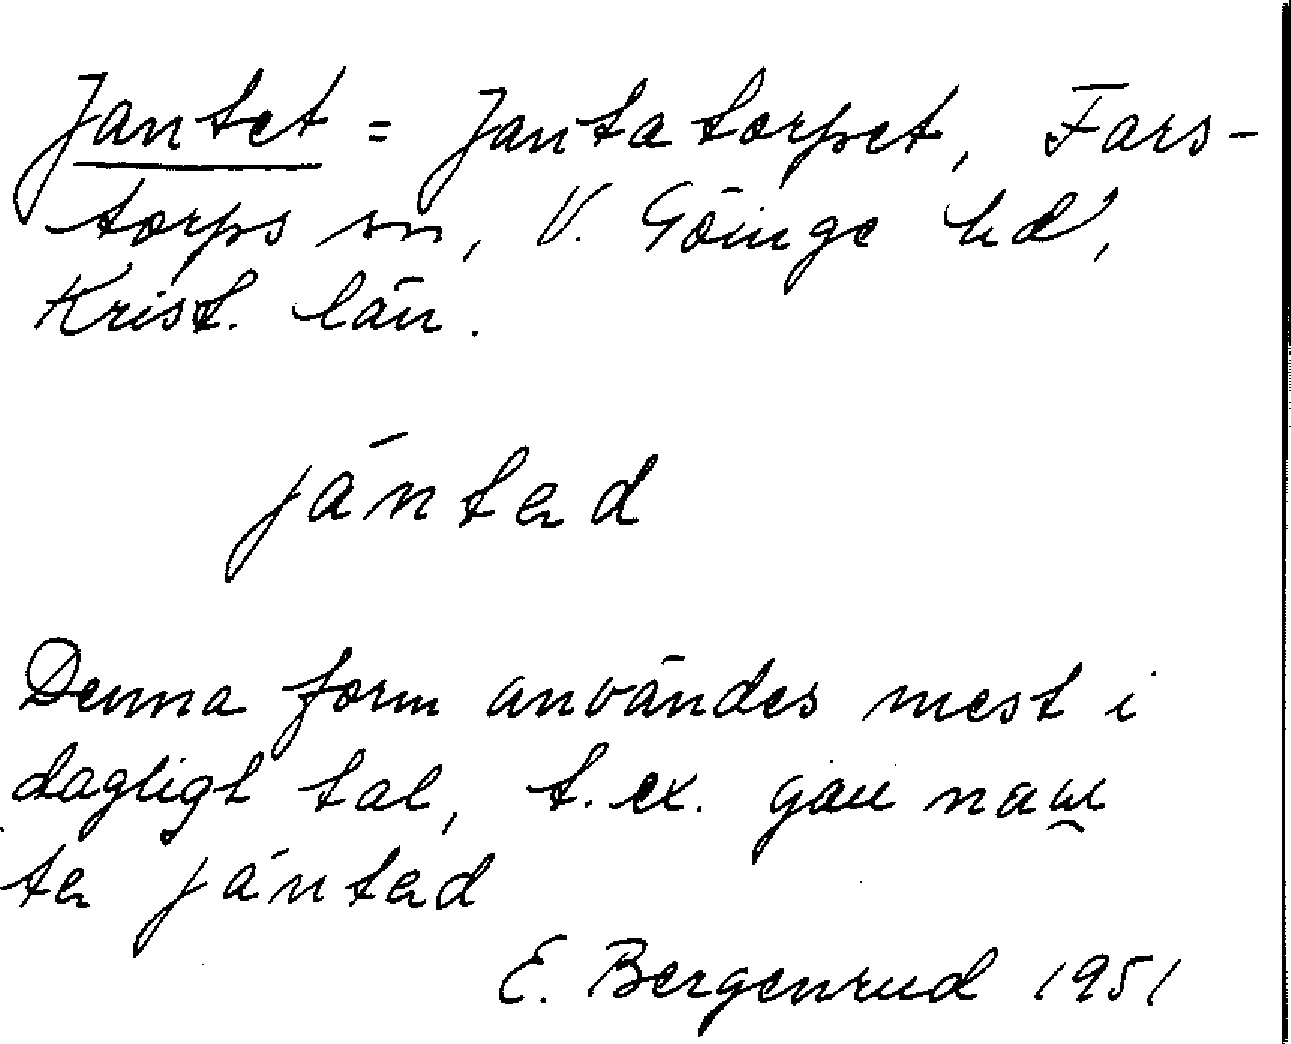 Jantet = Jantatorpet, Fars-
torps sn, V. Göinge hd,
Krist. län.
jántəd
Denna form användes mest i
dagligt tal, t.ex. gau naur
tə jántəd
E. Bergenrud 1951